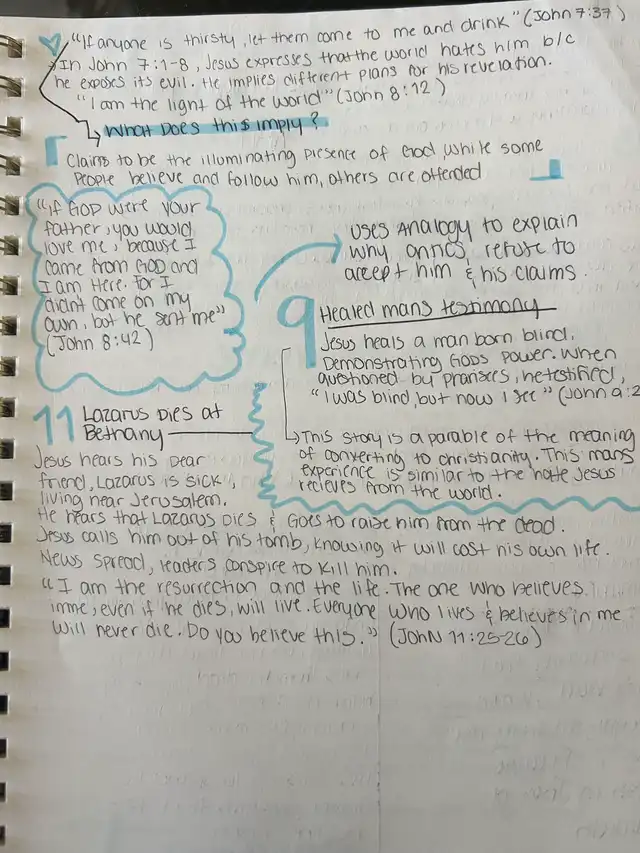 "If anyone is thirsty, let them come to me and drink" (John 7:37)
In John 7:1-8, Jesus expresses that the world hates him b/c
he exposes its evil. He implies different plans for his revelation.
"I am the light of the world" (John 8:12)
What Does this imply?
Claims to be the illuminating presence of God, while some
People believe and follow him, others are offended
"If GOD were your
father, you would
love me, because I
came from GOD and
I am Here. For I
didnt come on my
own, but he sent me"
(John 8:42)
uses Analogy to explain
why refuse to
accept him & his claims.
9 Healed mans testimony
Jesus heals a man born blind,
Demonstrating Gods power. When
questioned by he testified,
"I was blind, but now I see" (John 9:2
This story is a parable of the meaning
of converting to christianity. This mans
experience is similar to the hate Jesus
recieves from the world.
11 Lazarus Dies at
Bethany
Jesus hears his Dear
friend, Lazarus is sick,
living near Jerusalem.
He hears that Lazarus Dies & Goes to raise him from the dead.
Jesus calls him out of his tomb, knowing it will cost his own life.
News spread, leaders conspire to kill him.
"I am the resurrection and the life. The one who believes
in me, even if he dies, will live. Everyone who lives & believes in me
will never die. Do you believe this." (John 11:25-26)